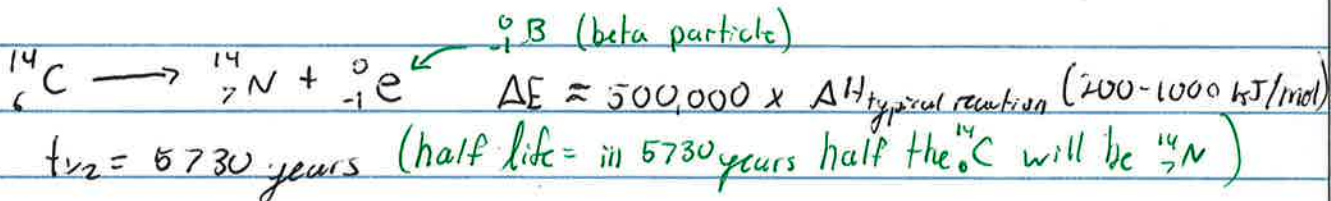 ⁰₋₁B (beta particle)
¹⁴₆C → ¹⁴₇N + ⁰₋₁e ΔE ≈ 500,000 x ΔH typical reaction (200-1000 kJ/mol)
t₁/₂ = 5730 years (half life = in 5730 years half the ¹⁴₆C will be ¹⁴₇N)